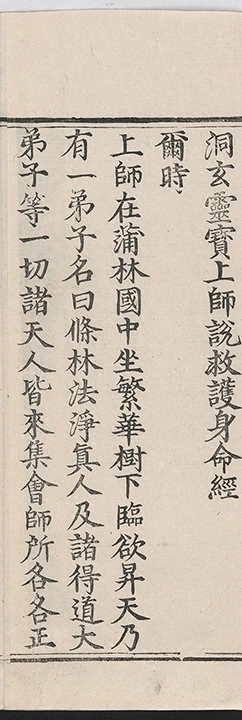 洞玄靈寶上師說救護身命經
爾時
上師在蒲林國中坐繁華樹下臨欲昇天乃
有一弟子名曰條林法淨真人及諸得道大
弟子等一切諸天人皆來集會師所各各正